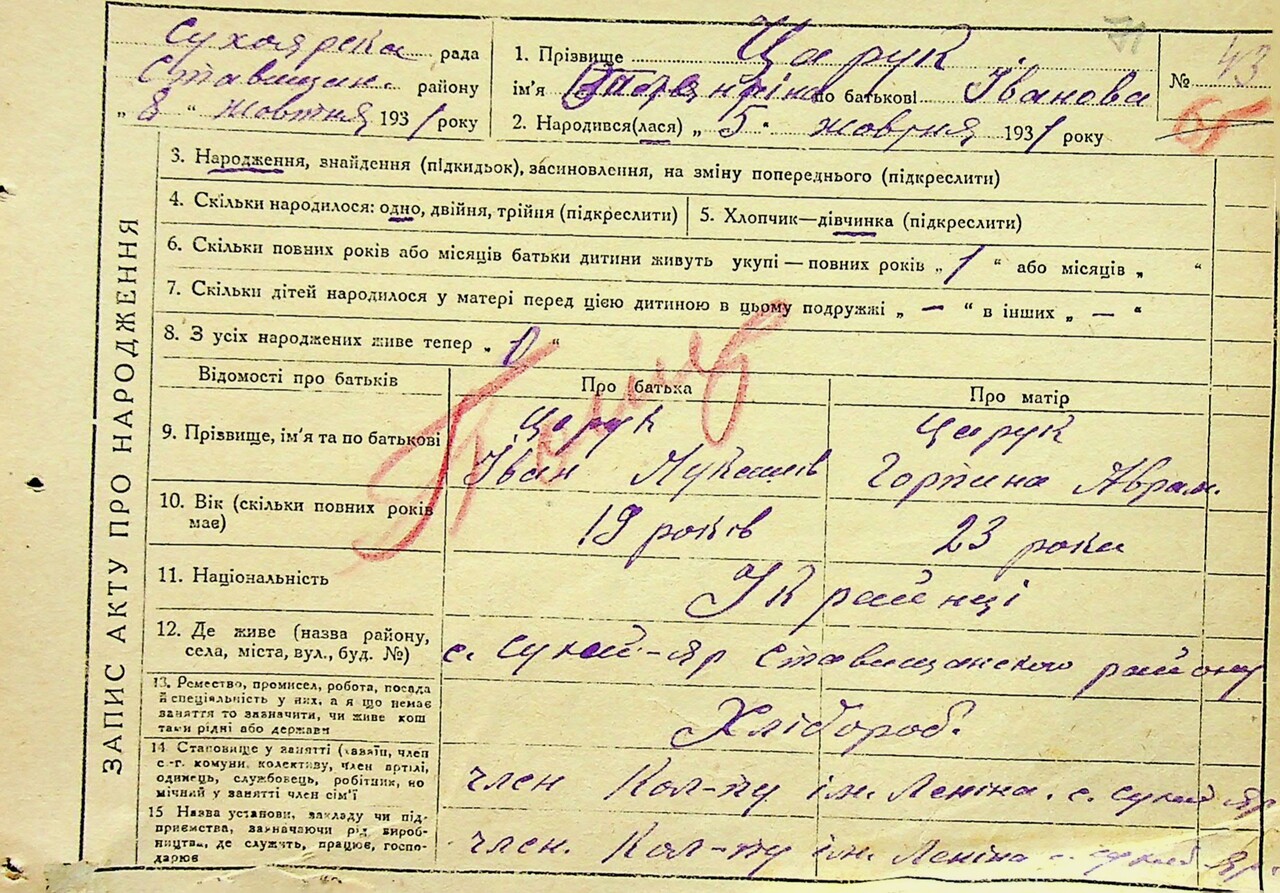 Сухоярська рада
Ставищан. району
„ 8 " жовтня 1931 року
1. Прізвище Царук
ім'я по батькові Іванова
2. Народився(лася) „ 5 " жовтня 1931 року
№ 43
ЗАПИС АКТУ ПРО НАРОДЖЕННЯ
3. Народження, знайдення (підкидьок), засиновлення, на зміну попереднього (підкреслити)
4. Скільки народилося: одно, двійня, трійня (підкреслити)
5. Хлопчик—дівчинка (підкреслити)
6. Скільки повних років або місяців батьки дитини живуть укупі — повних років „ 1 " або місяців „ "
7. Скільки дітей народилося у матері перед цією дитиною в цьому подружжі „ — " в інших „ — "
8. З усіх народжених живе тепер „ "
Відомості про батьків
Про батька
Про матір
9. Прізвище, ім'я та по батькові
Царук
Іван Лукашів
Царук
Горпина Аврам.
10. Вік (скільки повних років має)
19 років
23 роки
11. Національність
Українці
12. Де живе (назва району,
села, міста, вул., буд. №)
с. Сухий-Яр Ставищанского району
13. Ремество, промисел, робота, посада
й спеціяльність у них, а я що немає
заняття то зазначити, чи живе кош
тами рідні або держави
Хлібороб.
14 Становище у занятті (хазяїн, член
с.-г. комуни, колективу, член артілі,
одинець, службовець, робітник, по
мічний у занятті член сім'ї
член Кол-пу ім. Леніна. с. Сухий Яр
15 Назва установи, закладу чи під-
приємства, зазначаючи рід вироб-
ництва, де служать, працює, госпо-
дарює
член. Кол-пу ім. Леніна с. Сухий Яр.